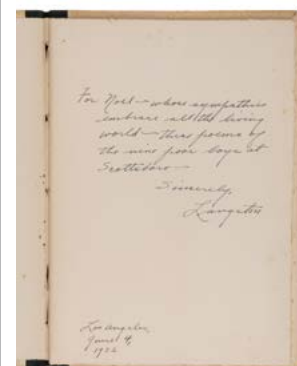 For Noël — whose sympathies
embrace all the living
world — these poems of
the nine poor boys at
Scottsboro —
Sincerely,
Langston
Los Angeles,
June 4,
1932